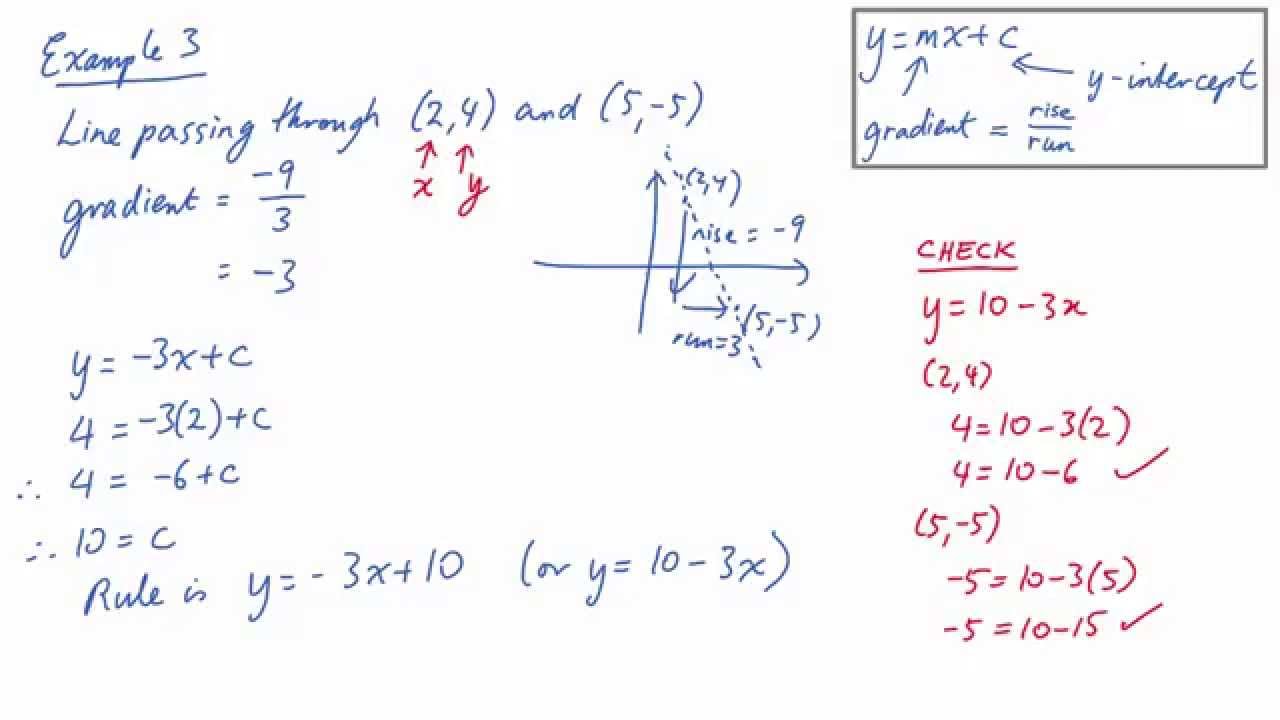 Example 3
Line passing through (2,4) and (5,-5)
x y
gradient = -9/3
= -3
y = -3x+c
4 = -3(2)+c
∴ 4 = -6+c
∴ 10 = c
Rule is y = -3x+10 (or y = 10-3x)
(2,4)
rise = -9
(5,-5)
run=3
y = mx+c
y-intercept
gradient = rise/run
CHECK
y = 10-3x
(2,4)
4 = 10-3(2)
4 = 10-6 ✓
(5,-5)
-5 = 10-3(5)
-5 = 10-15 ✓